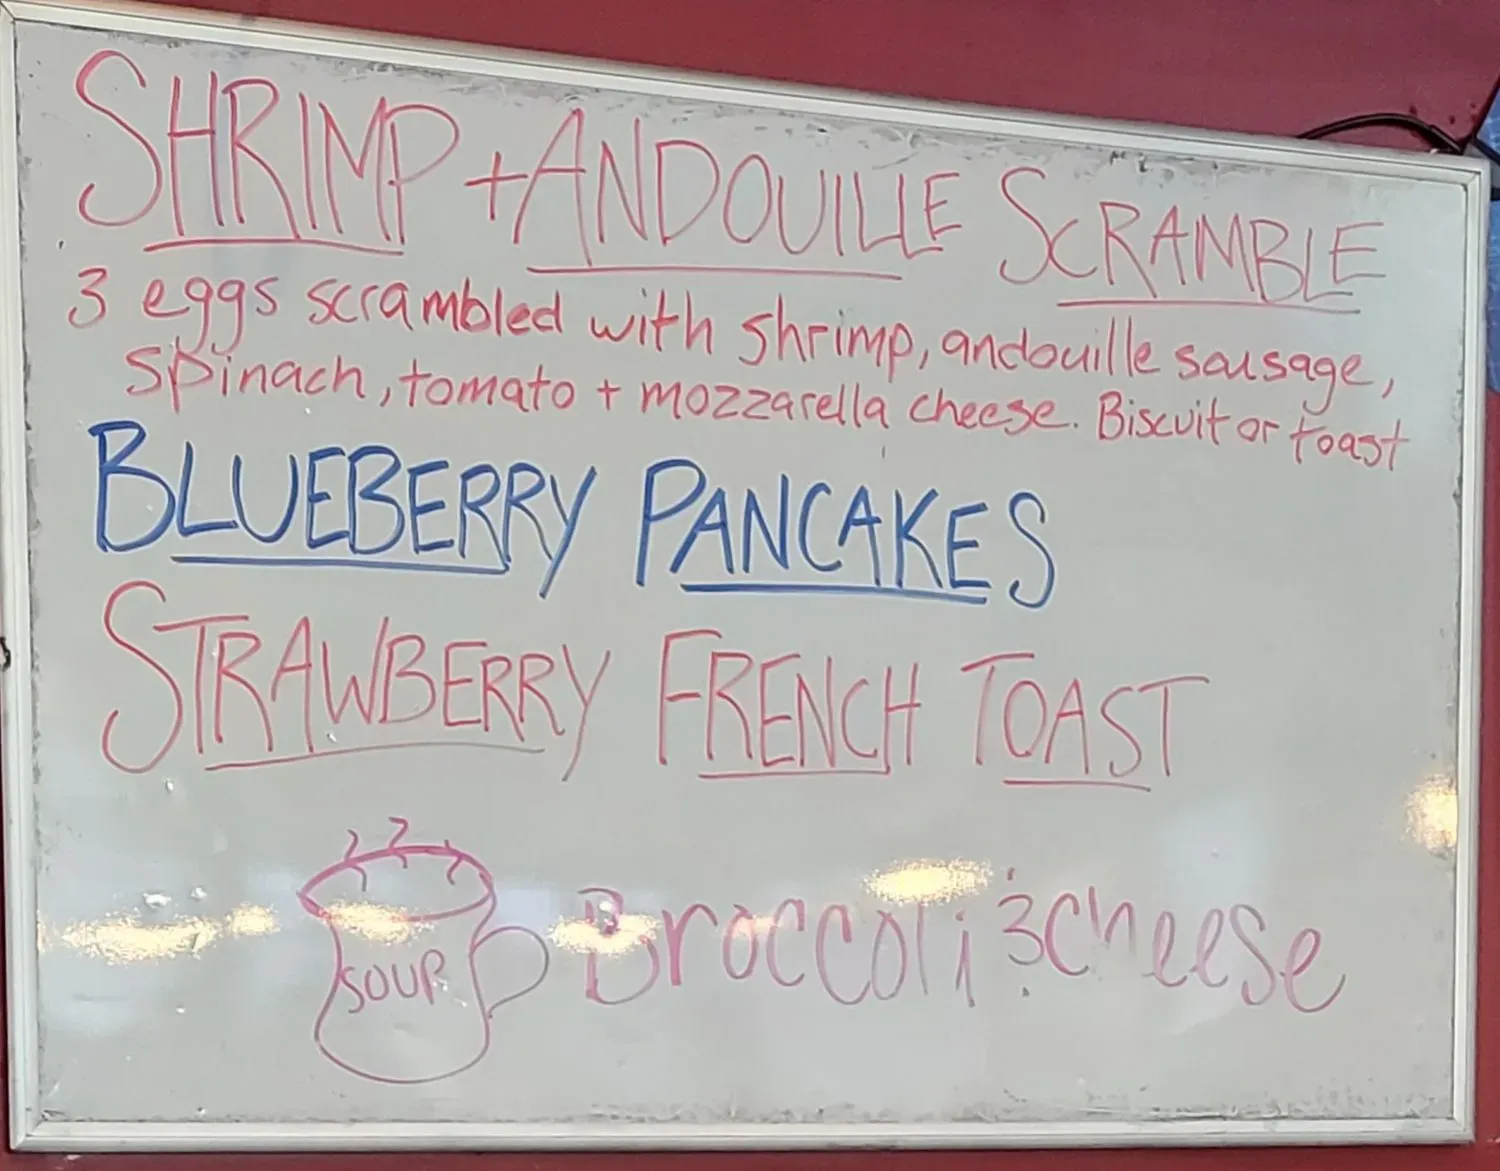 SHRIMP + ANDOUILLE SCRAMBLE
3 eggs scrambled with shrimp, andouille sausage,
spinach, tomato + mozzarella cheese. Biscuit or toast
BLUEBERRY PANCAKES
STRAWBERRY FRENCH TOAST
SOUP Broccoli & cheese